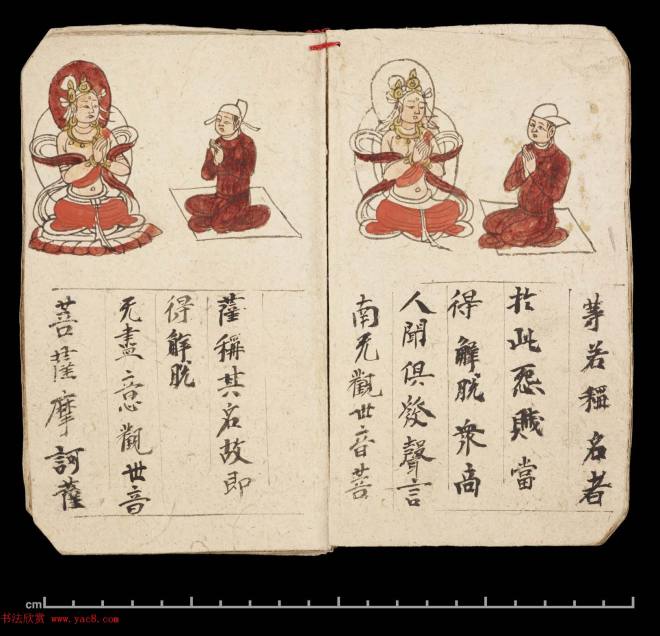 等若稱名者
於此惡賊當
得解脫衆商
人聞俱發聲言
南无觀世音菩
薩稱其名故即
得解脫
无盡意觀世音
菩薩摩訶薩
cm
书法欣赏 www.yac8.com